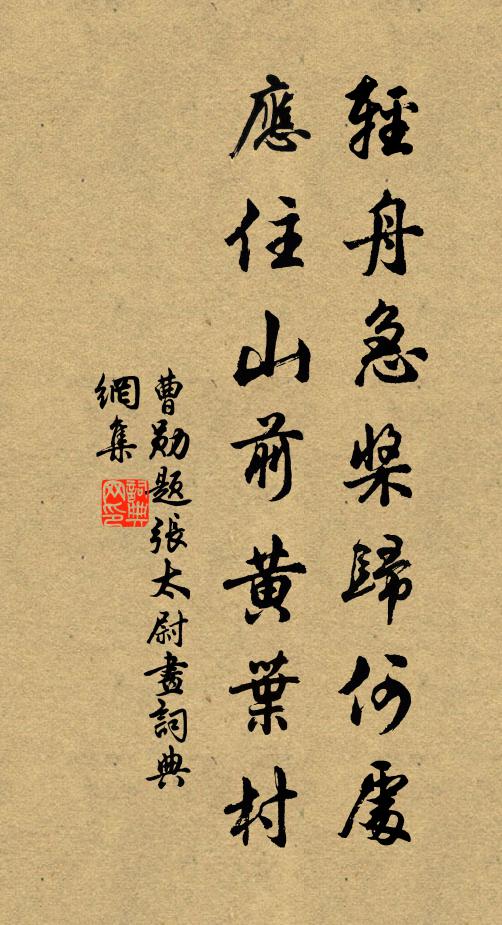 輕舟急槳歸何處
應住山前黃葉村
曹勛題張太尉畫詞典
網集
詞典網印